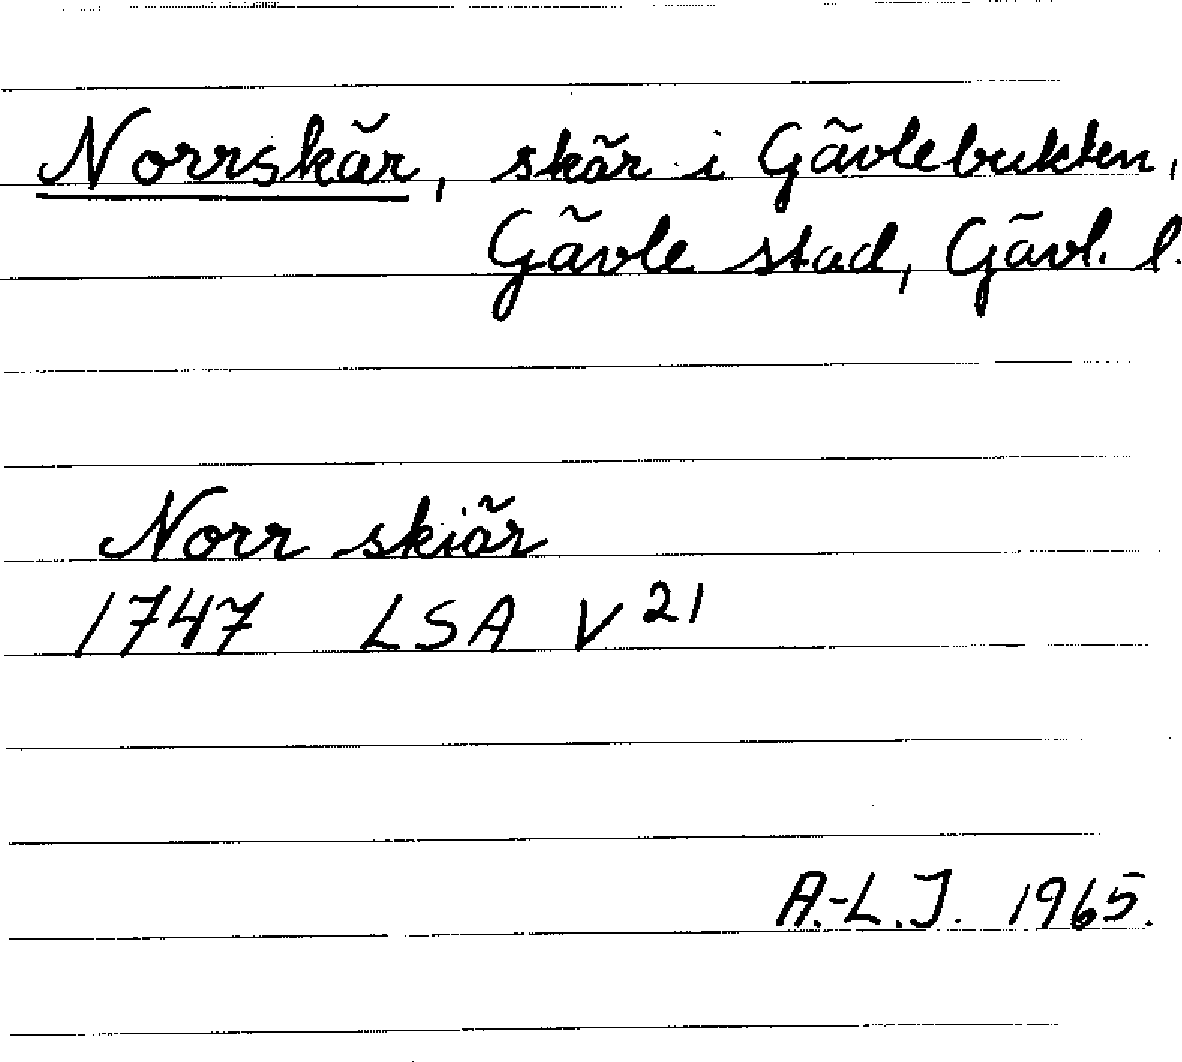 Norrskär, skär i Gävlebukten,
Gävle stad, Gävl. l.
Norr skiär
1747 LSA V 21
A.-L.J. 1965.